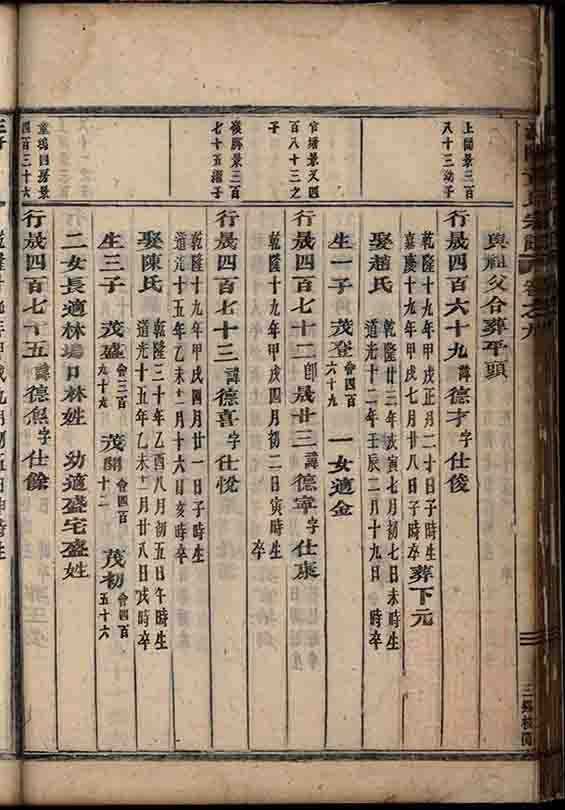 與祖父合葬平頭
上閣景三百
八十三幼子
行晟四百六十九諱德才字仕俊
乾隆十九年甲戌正月二十日子時生
嘉慶十九年甲戌七月廿八日子時卒葬下元
娶趙氏
乾隆廿三年戊寅七月初七日未時生
道光十二年壬辰二月十九日卒
生一子
茂登會四百六十九
一女適金
官塘景又四
百八十三之
子
行晟四百七十二即晟廿三諱德寧字仕康
乾隆十九年甲戌四月初二日寅時生
卒
嶺脚景三百
七十五繼子
行晟四百七十三諱德喜字仕悅
乾隆十九年甲戌四月廿一日子時生
道光十五年乙未十一月十六日亥時卒
娶陳氏
乾隆三十年乙酉八月初五日午時生
道光十五年乙未十一月廿八日戌時卒
生三子
茂盛會三百九十九
茂開會四百十二
茂初會四百五十六
二女長適林塢口林姓
幼適盛宅盛姓
童塢四房景
四百三十六
行晟四百七十五諱德焦字仕餘